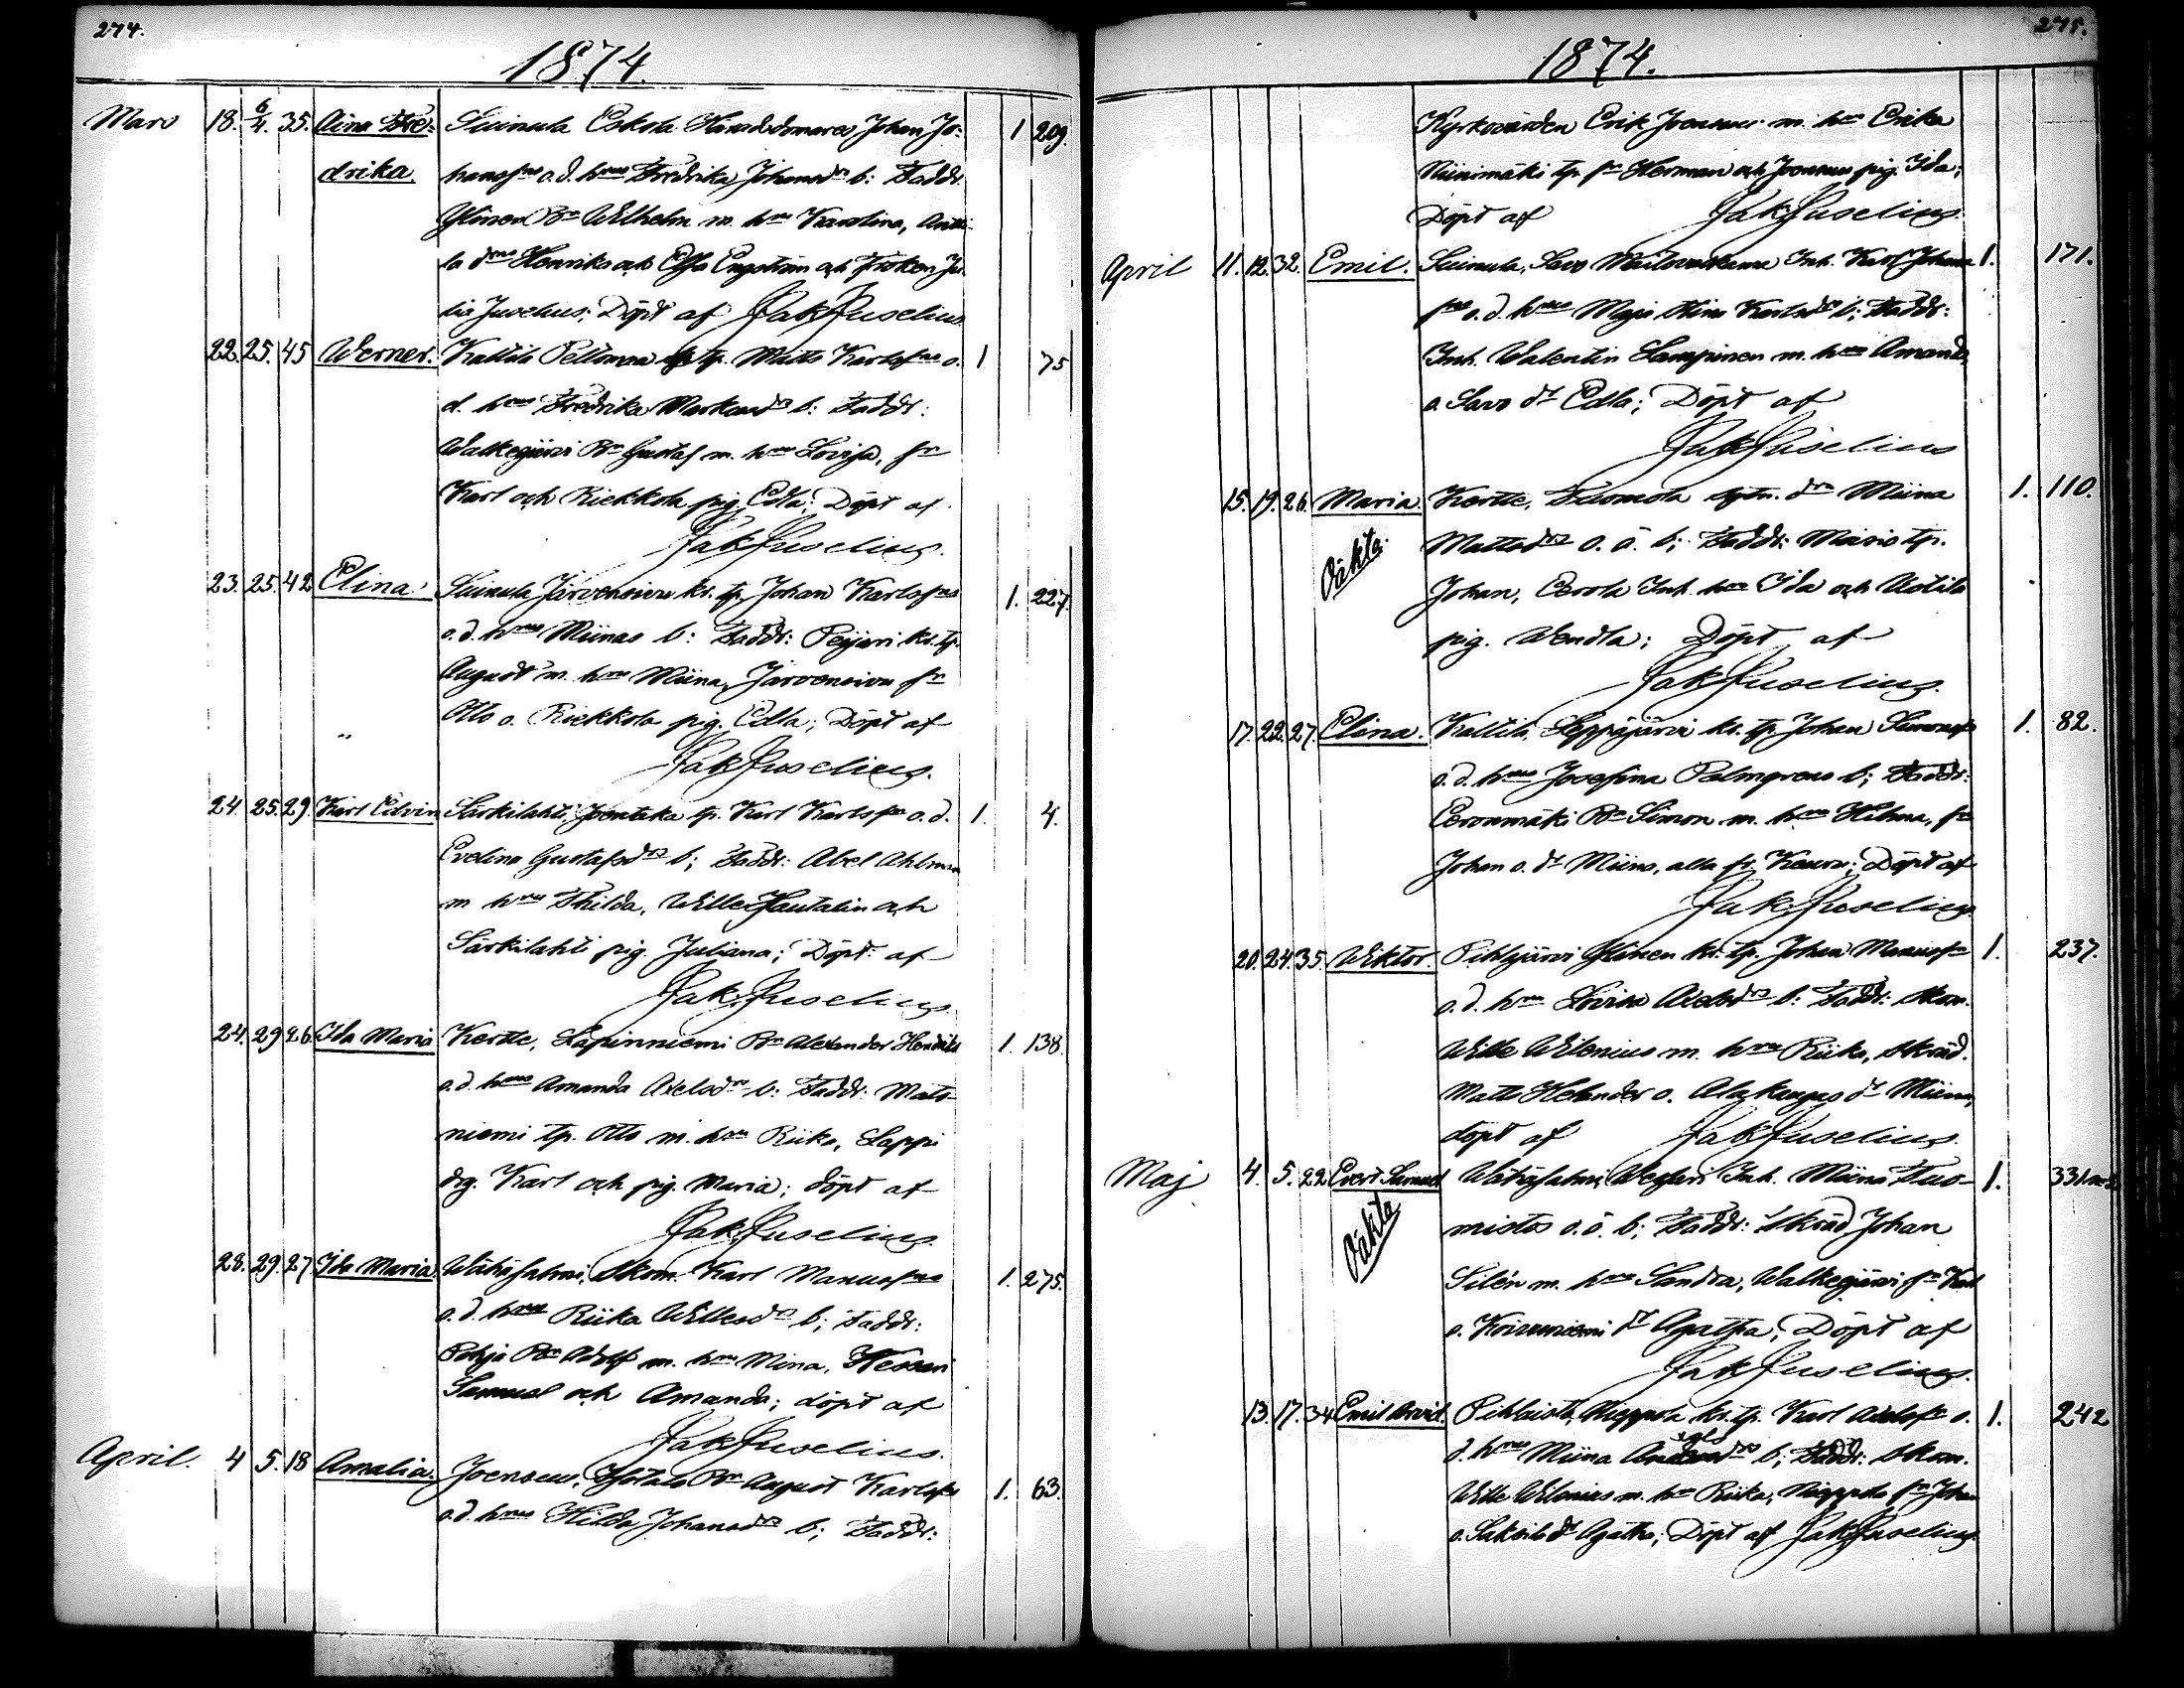 274.
1874.
Mars 18. 6/4. 35. Aina Fre- Suinula Eskola Häradsdomaren Johan Jo- 1 209.
drika. hanssons o. d. hrus Fredrika Johansdrs b: Faddr.
Ylinen Bn Wilhelm m. hru Karolina, Antti-
la drna Henrika och Effa Engström och fröken Ju-
lia Juselius; Döpt af Jak Juselius.
22. 25. 45 Werner. Kallila Peltomaa tp. Matts Karlssons o. 1 75
d. hrus Fredrika Markusdrs b: Faddr:
Walkejärvi Bn Gustaf m. hru Lovisa, sn
Karl och Riekkola pig. Edla; Döpt af
Jak Juselius.
23. 25. 42 Elina. Suinula Järvensivu ks. tp. Johan Karlssons 1. 227.
o. d. hrus Miinas b: Faddr: Peijari ks. tp.
August m. hru Miina, Järvensivu sn
Otto o. Riekkola pig. Edla; Döpt af
Jak Juselius.
24. 25. 29. Karl Edvin Särkilahti, Joentaka tp. Karl Karlsson o. d. 1. 4.
Evelina Gustafsdrs b; Faddr: Abel Ahlman
m hru Thilda, Wille Hautalin och
Särkilahti pig. Juliana; Döpt af
Jak Juselius.
24. 29 26. Ida Maria Kertte, Lapinniemi Bn Alexander Henriks 1. 138.
o. d. hrus Amanda Axelsdrs b: Faddr: Mats-
niemi tp. Otto m. hru Riika, Lappi
drg. Karl och pig. Maria; döpt af
Jak Juselius.
28. 29. 27. Ida Maria. Wähäsalmi, Skom. Karl Manussons 1. 275.
o. d. hrus Riika Willesdrs b; Faddr:
Pohja Bn Adolf m. hru Mina, Hessari
Samuel och Amanda; döpt af
Jak Juselius.
April. 4 5. 18 Amalia. Joensuu, Bn August Karlssons 1. 63.
o. d. hrus Hilda Johansdrs b; Faddr:
275.
1874.
Kyrkovärden Erik Joensuu m. hru Erika
Niinimäki tp. sn Herman och Joensuu pig. Ida;
Döpt af Jak Juselius.
April 11. 12. 32. Emil. Suinula, Savo Inh. Karl Johans- 1. 171.
sons o. d. hrus Maja Stina Karlsdrs b; Faddr:
Inh. Walentin Lampinen m. hru Amanda,
o. Savo dr Edla; Döpt af
Jak Juselius
15. 19. 26. Maria. Kertte, Tuomola dra Miina 1. 110.
Oäkta. Mattsdrs o. ä. b; Faddr: tp.
Johan, Eerola Inh. hru Ida och Uotila
pig. Wendla; Döpt af
Jak Juselius.
17. 22. 27. Elina. Kallila, Leppäjärvi ks. tp. Johan 1. 82.
o. d. hrus Josefina Palmgrens b; Faddr:
Eeronmäki Bn Simon m. hru Hilma, sn
Johan o. dr Miina, alla fr. Keuru; Döpt af
Jak. Juselius
20. 24. 35. Wiktor. Pihlajärvi Ylinen ks. tp. Johan Manusson 1. 237.
o. d. hru Lovisa Axelsdrs b: Faddr: Skom.
Wille Wilenius m. hru Riika, Skräd.
Matts Helander o. Alakangas dr Miina,
döpt af Jak Juselius.
Maj 4. 5. 22 Evert Samuel Wähäsalmi, Inh. Miina Tuo- 1. 331
Oäkta mistos o. ä. b; Faddr: Skräd Johan
Silén m. hru Sandra, Walkejärvi sn Karl
o. Koivuniemi dr Agatha; Döpt af
Jak Juselius.
13. 17. 34 Emil Arvid. Pihlaisto, Nieppola ks. tp. Karl Axelsson o. 1. 242
d. hrus Miina b; Faddr: Skom.
Wille Wilenius m. hru Riika, Nieppola sn Johan
o. dr Agatha; Döpt af Jak Juselius.